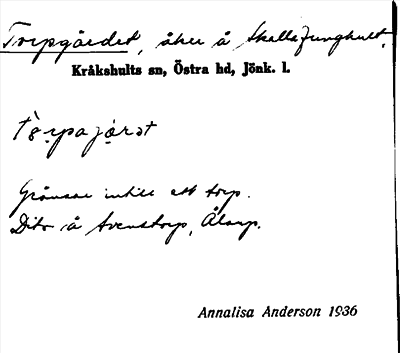 Torpgärdet, åker å Skalla Ljunghult.
Kråkshults sn, Östra hd, Jönk. l.
Gränsar intill ett torp.
Dito å Svenstorp, Åkarp.
Annalisa Anderson 1936